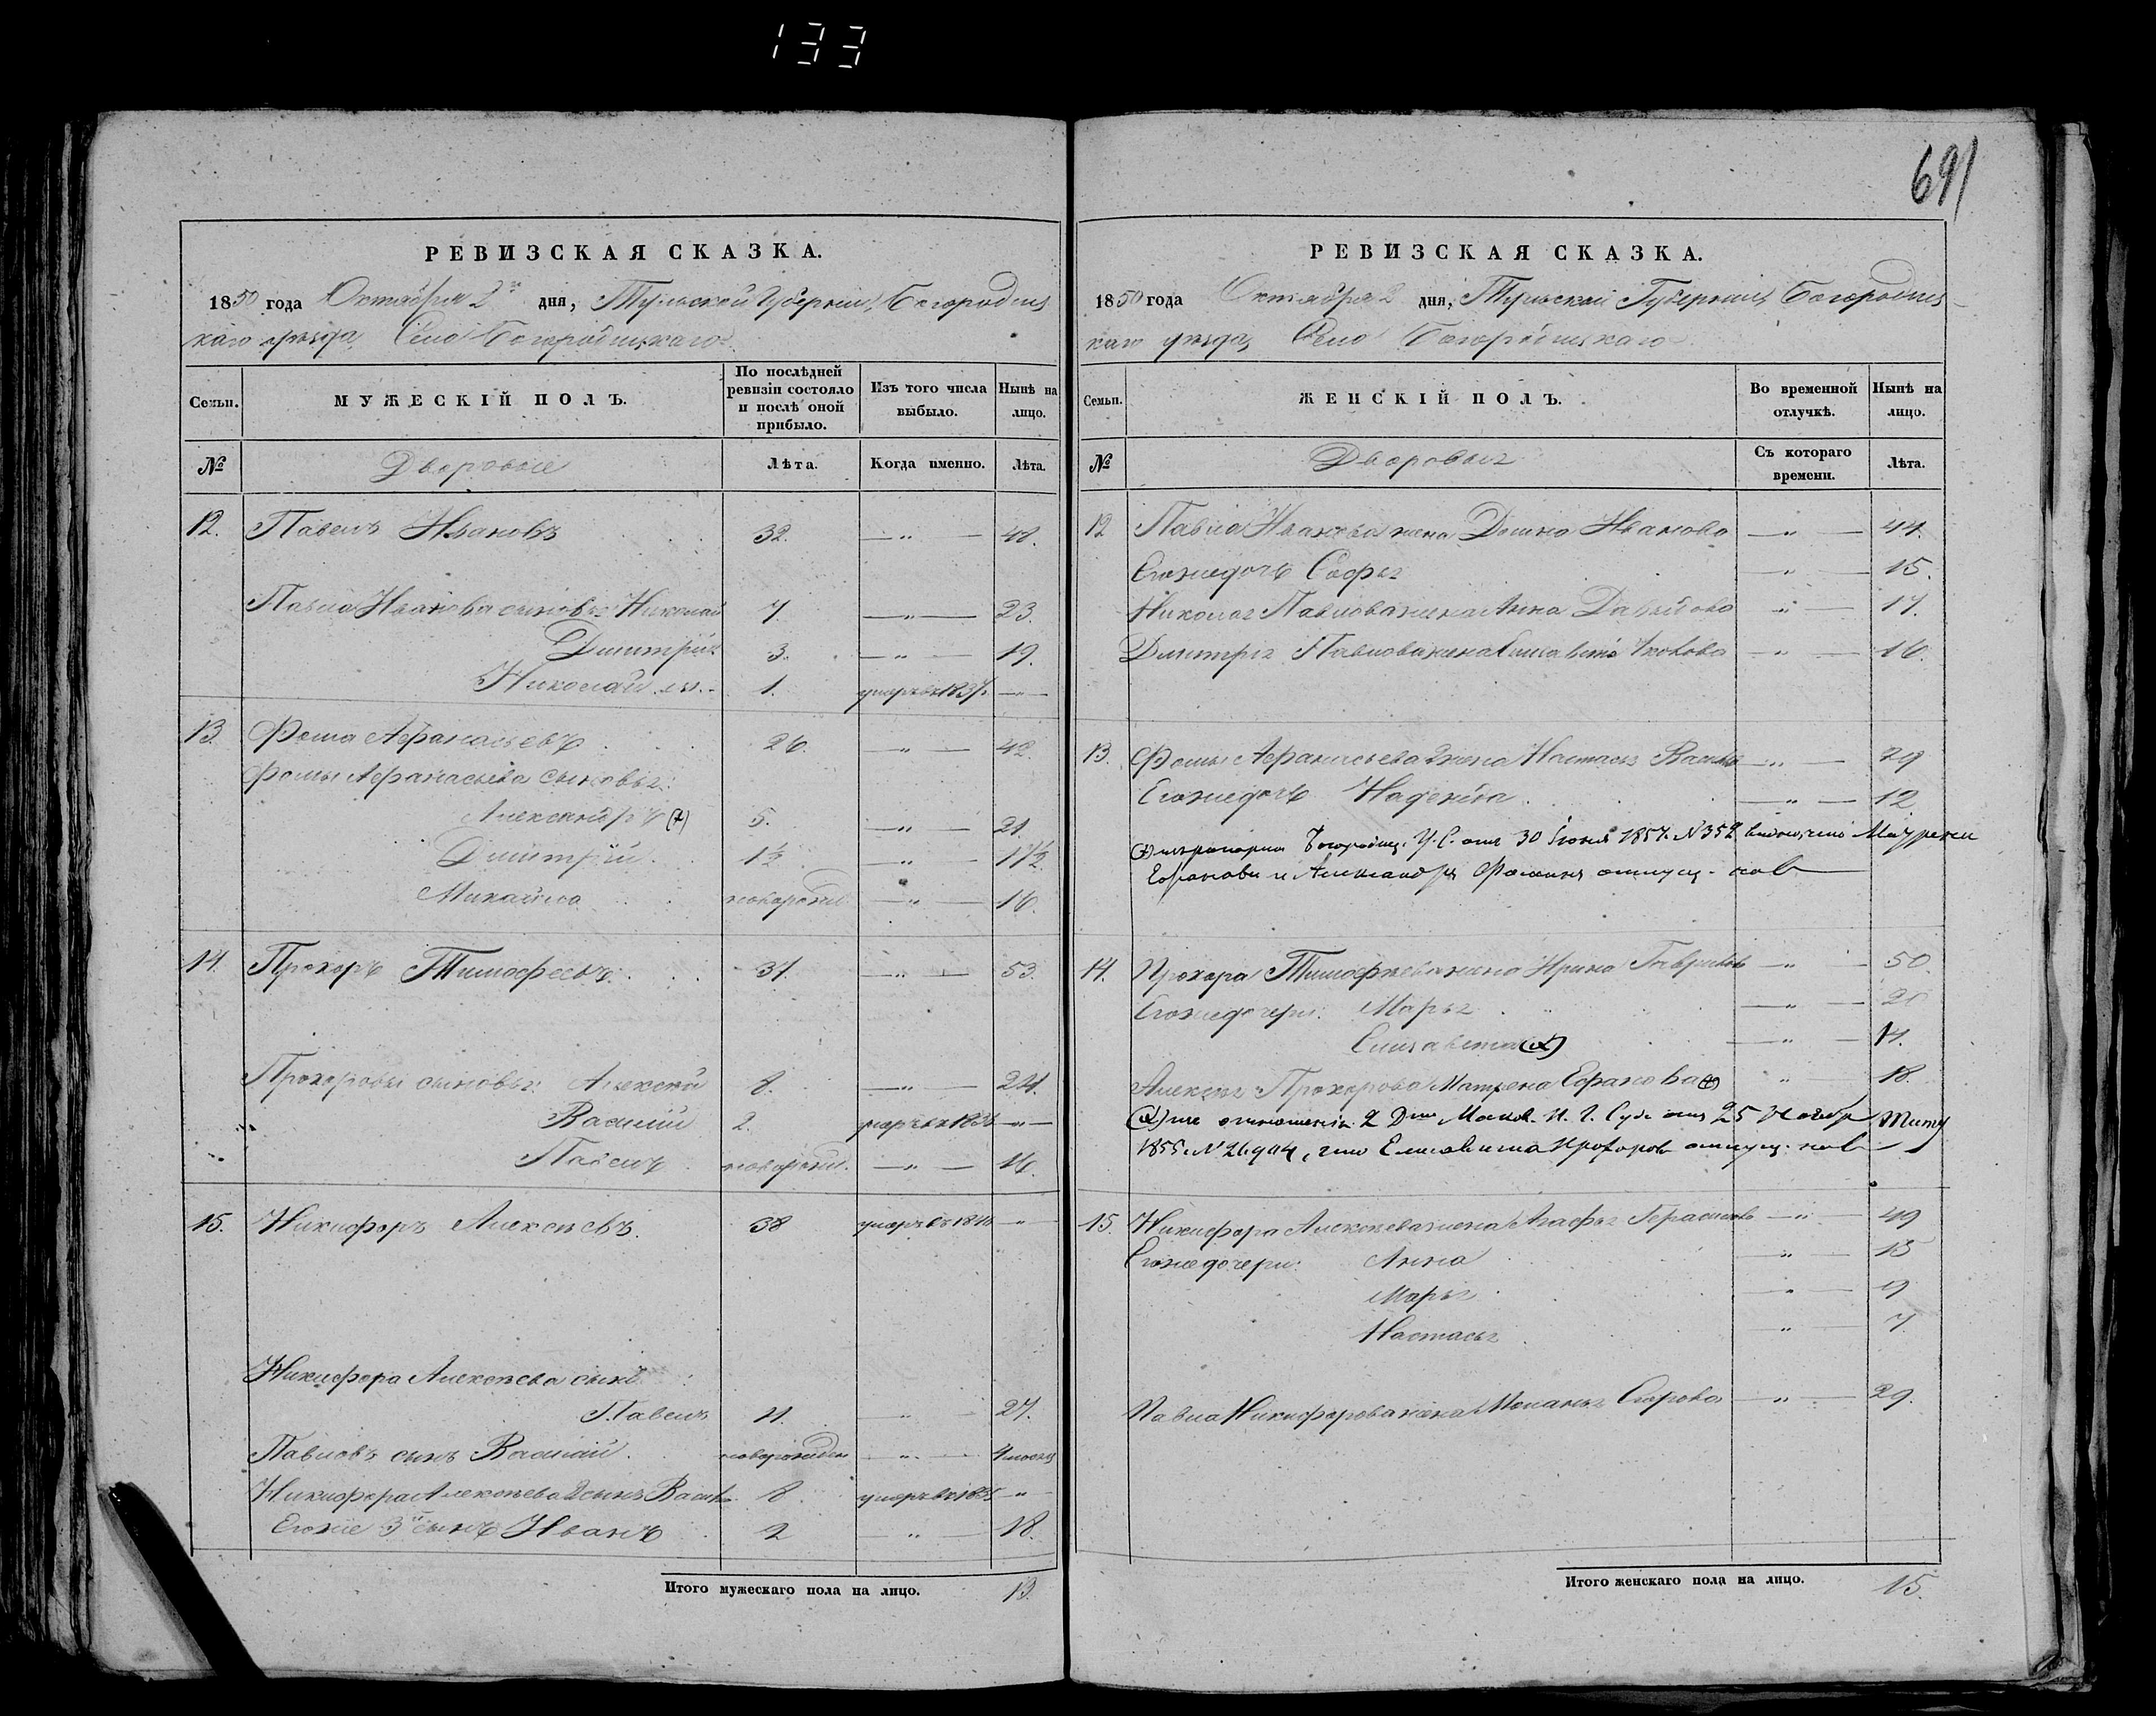 133
691
РЕВИЗСКАЯ СКАЗКА.
1850 года Октября 2го дня, Тульской Губернии, Богородиц
каго уѣзда, Село Богородицкаго
Семьи. МУЖЕСКІЙ ПОЛЪ. По послѣдней ревизіи состояло и послѣ оной прибыло. Изъ того числа выбыло. Нынѣ на лицо.
№ Дворовые Лѣта. Когда именно. Лѣта.
12. Павелъ Ивановъ 32. —„— 48.
Павла Иванова сыновья Николай 7. —„— 23.
Дмитрій 3. —„— 19.
Николай 1. умеръ въ —„—
13. Фома Афанасьевъ 26. —„— 42.
Фомы Афанасьева сыновья:
Александръ (+) 5. —„— 21.
Дмитрій 1½ —„— 17½
Михайла новорожд —„— 16.
14. Прохоръ Тимофеевъ 37. —„— 53.
Прохоровы сыновья: Алексѣй 8. —„— 24.
Василій 2. умеръ въ —„—
Павелъ новорожд. —„— 16.
15. Никифоръ Алексѣевъ. 38 умеръ въ —„—
Никифора Алексѣева сынъ
Павелъ 11. —„— 27.
Павловъ сынъ Василій новорожден —„— 4 месяц
Никифора Алексѣева 2 сынъ 8 умеръ въ —„—
Его же 3й сынъ Иванъ 2 —„— 18.
Итого мужескаго пола на лицо. 13.
РЕВИЗСКАЯ СКАЗКА.
1850 года Октября 2 дня, Тульской Губерніи Богородиц-
каго уѣзда, Село Богородицкаго
Семьи. ЖЕНСКІЙ ПОЛЪ. Во временной отлучкѣ. Нынѣ на лицо.
№ Дворовыя Съ котораго времени. Лѣта.
12 Павла Иванова жена Домна Иванова —„— 44.
Его же дочь Софья —„— 15.
Николая Павлова жена Анна Давыдова —„— 17.
Дмитрія Павлова жена Елисавета —„— 16.
13. Фомы Афанасьева жена Настасья —„— 29
Его же дочь Надежда —„— 12
30 Іюня 1857. № 352
и Александръ Фоминъ отпущ.
14. Прохора Тимофѣева жена Ирина Гаврилов —„— 50.
Его же дочери: Марья —„— 20
Елизавета (+) —„— 11.
Алексѣя Прохорова Матрена —„— 18.
отношенія 2 Москов. отъ 25
1855. № что Елисавета Прохоров отпущ.
15. Никифора Алексѣева жена Агафья Герасимов —„— 49
Его же дочери: Анна —„— 13
Марья —„— 9
Настасья —„— 7.
Павла Никифорова жена Меланья —„— 29.
Итого женскаго пола на лицо. 15.